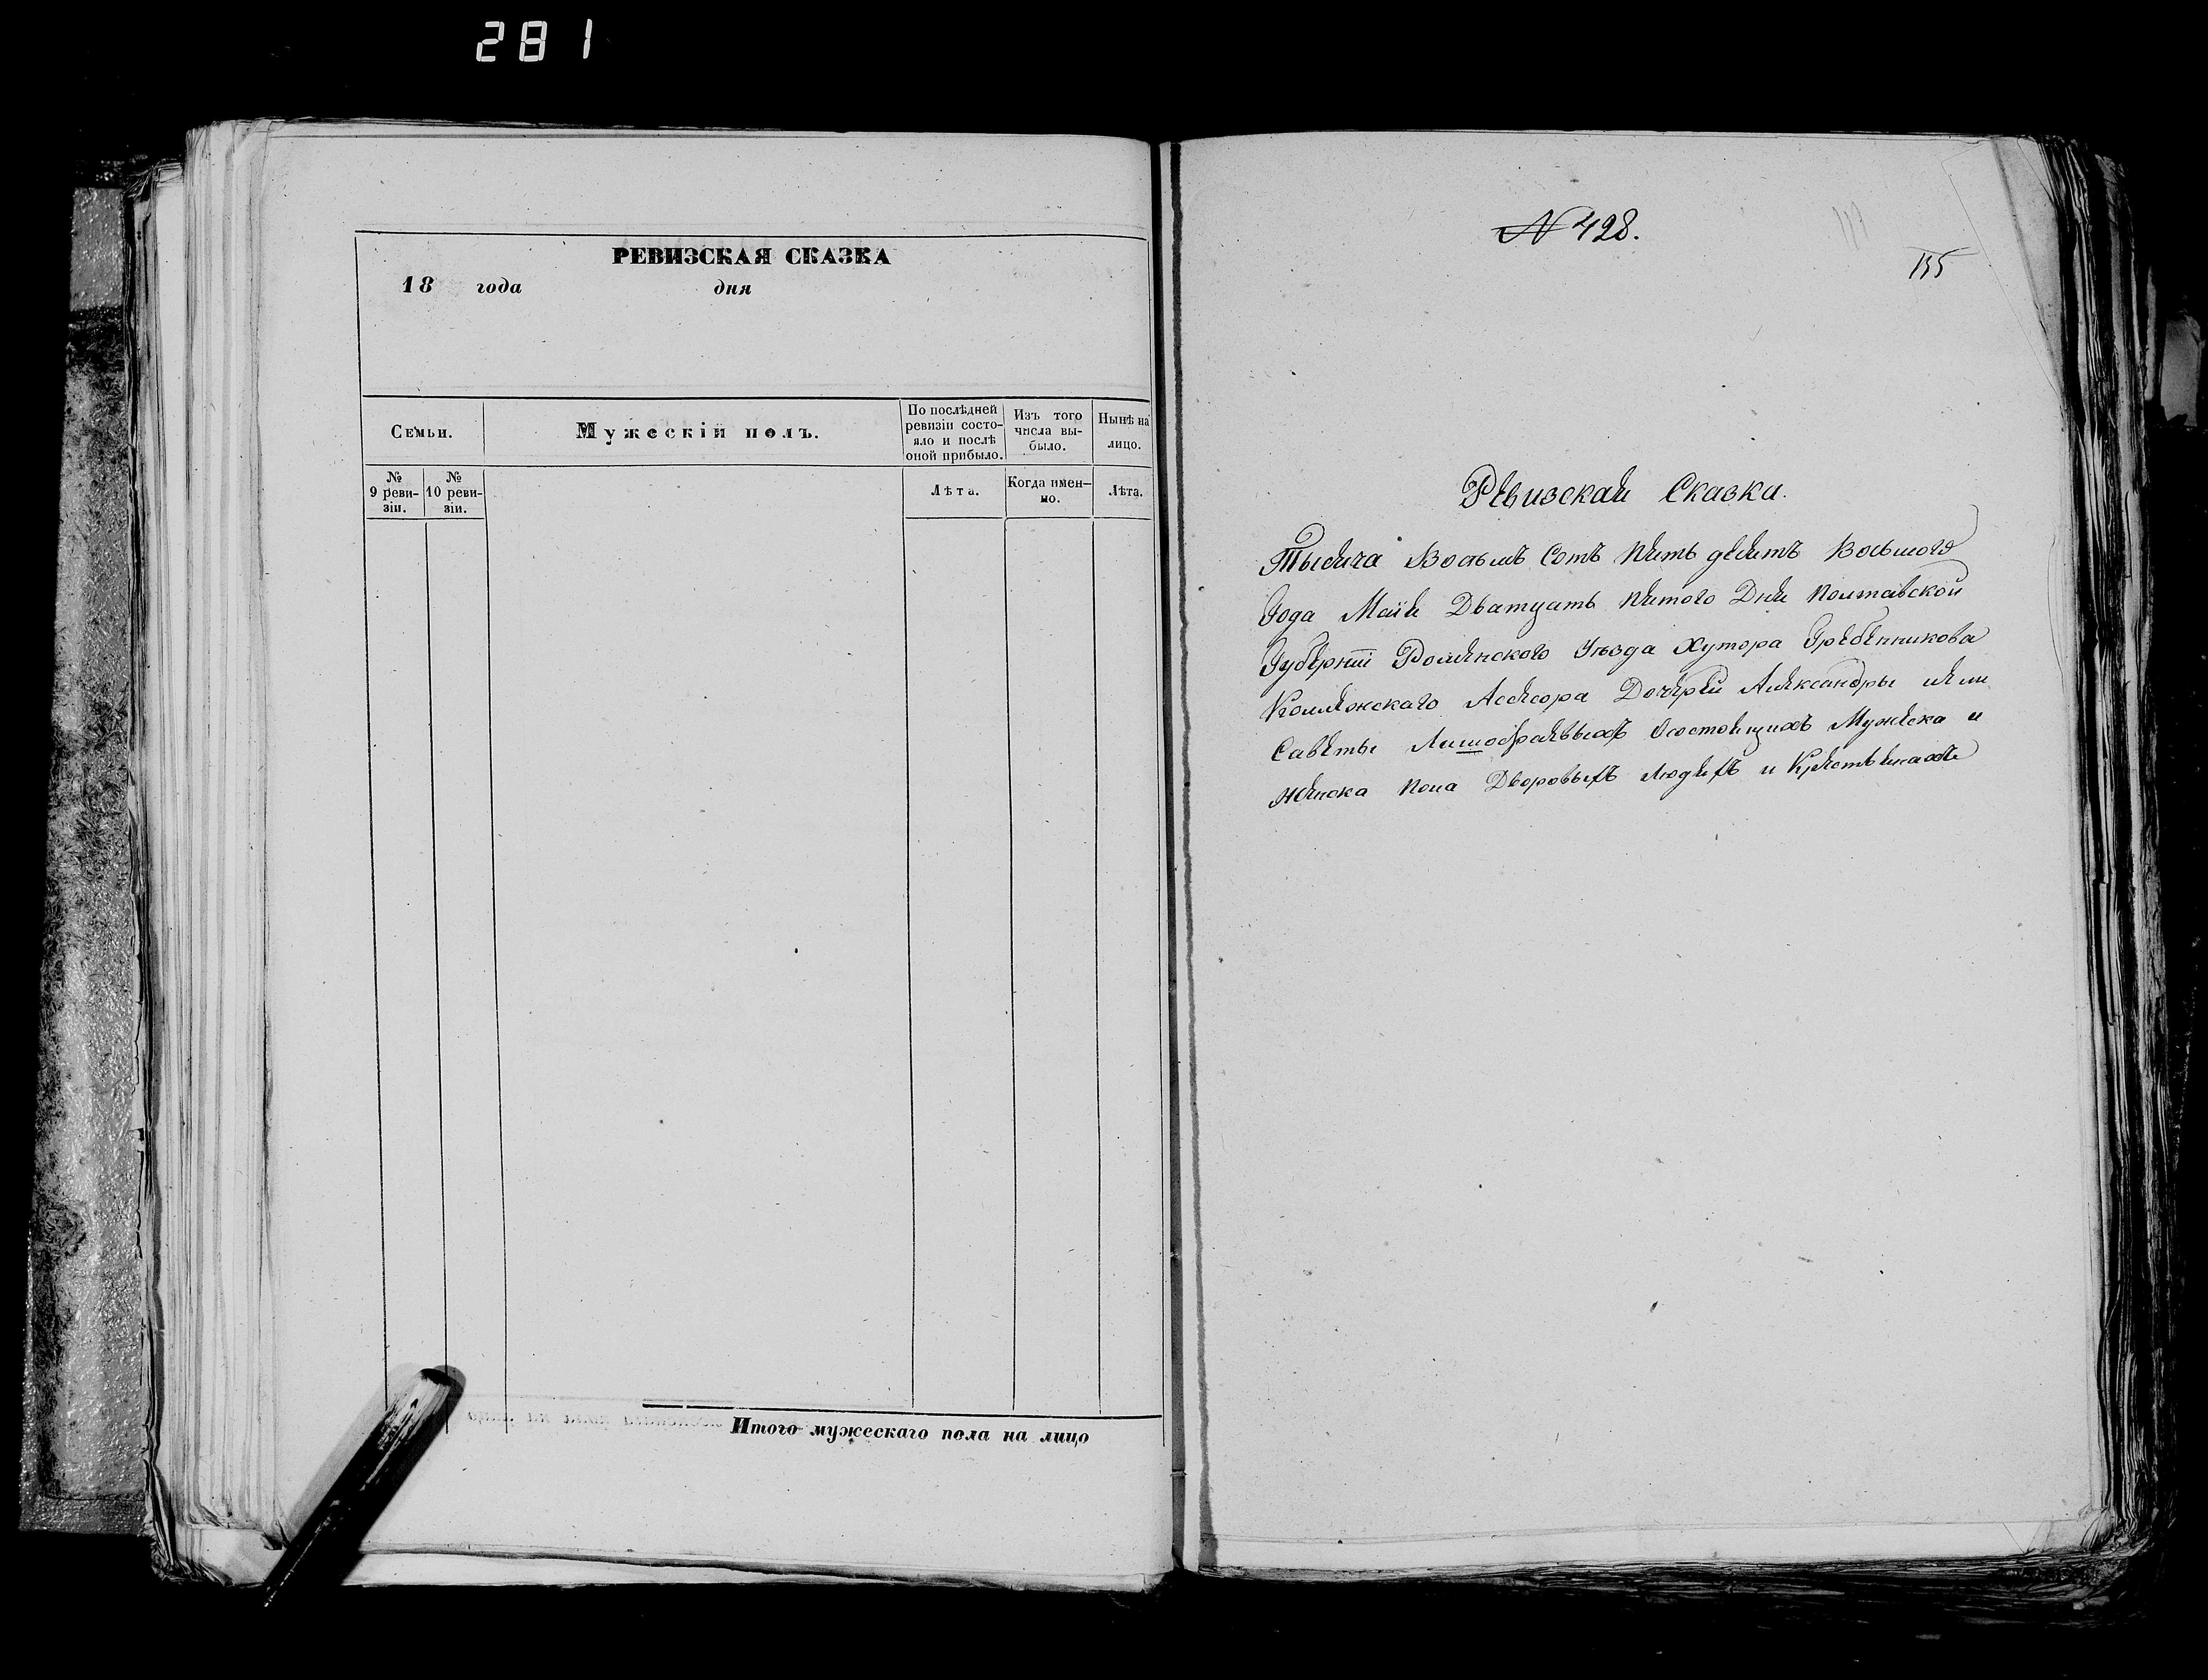 281
РЕВИЗСКАЯ СКАЗКА
18 года дня
Семьи.
Мужескій полъ.
По послѣдней ревизіи состояло и послѣ оной прибыло.
Изъ того числа выбыло.
Нынѣ на лицо.
№ 9 ревизіи.
№ 10 ревизіи.
Лѣта.
Когда именно.
Лѣта.
Итого мужескаго пола на лицо
№ 428.
Ревизская Сказка.
Тысяча Восемъ Сотъ Пять десятъ Восьмого
Года Маія Дватцать Пятого Дня Полтавской
Губерніи Роменского Уѣзда Хутора Гребенникова
Коллежскаго Асесора Дочерей Александры и
Саветы Состоящихъ Мужеска и
Женска Пола Дворовыхъ Людехъ и Крестьянахъ